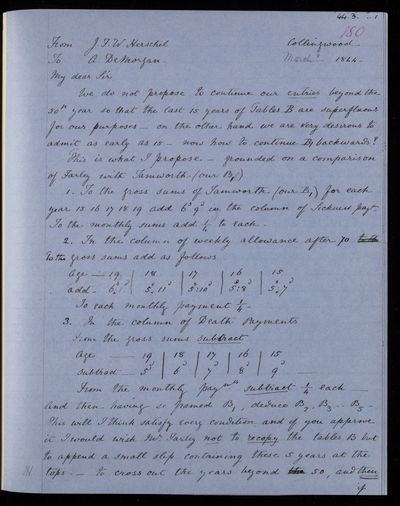 44.3..1
180
From J.F.W. Herschel Collingwood
To A. DeMorgan March? 1844
My dear Sir
We do not propose to continue our entries beyond the
50th year so that the last 15 years of Tables B are superfluous
for our purposes — on the other hand we are very desirous to
admit as early as 15 — now how to continue B1 backwards?
This is what I propose — grounded on a comparison
of Farley with Tamworth (our B1)
1. To the gross sums of Tamworth (our B1) for each
year 15 16 17 18 19 add 6s 9d in the column of Sickness payts.
To the monthly sums add ½ to each.
2. In the column of weekly allowance after 70
to the gross sums add as follows
age — 19 | 18 | 17 | 16 | 15
add — 6s.1d | 5s.11d | 5s.10d | 5s.8d | 5s.7d
To each monthly payment ½.
3. In the column of Death Payments
From the gross sums subtract
Age 19 | 18 | 17 | 16 | 15
subtract — 5d | 6d | 7d | 8d | 9d
From the monthly paymts subtract ½ each —
and then having so framed B1, deduce B2. B3 .. B5 —
This will I think satisfy every condition and if you approve
it I would wish Mr. Farley not to recopy the tables B but
to append a small slip containing these 5 years at the
tops. — to cross out the years beyond 50, and then
if